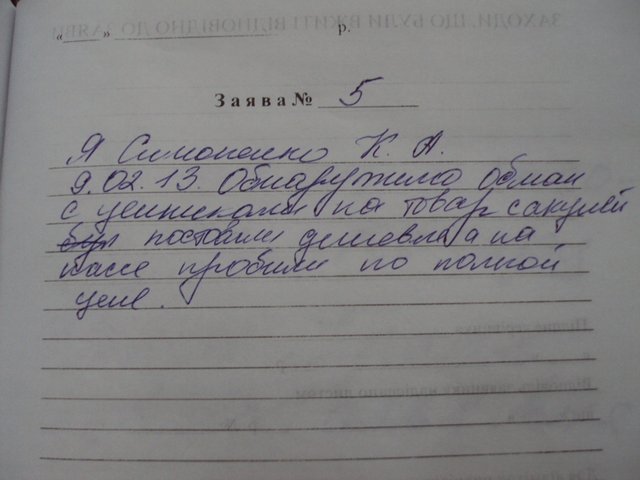 ЗАХОДИ, ЩО БУЛИ ВЖИТІ ВІДПОВІДНО ДО ЗАЯВИ
«____» ____________ р.
Заява № 5
Я Симоненко К. А.
9.02.13. Обнаружила обман
с ценниками на товар с акцией
поставили дешевле а на
кассе пробили по полной
цене.